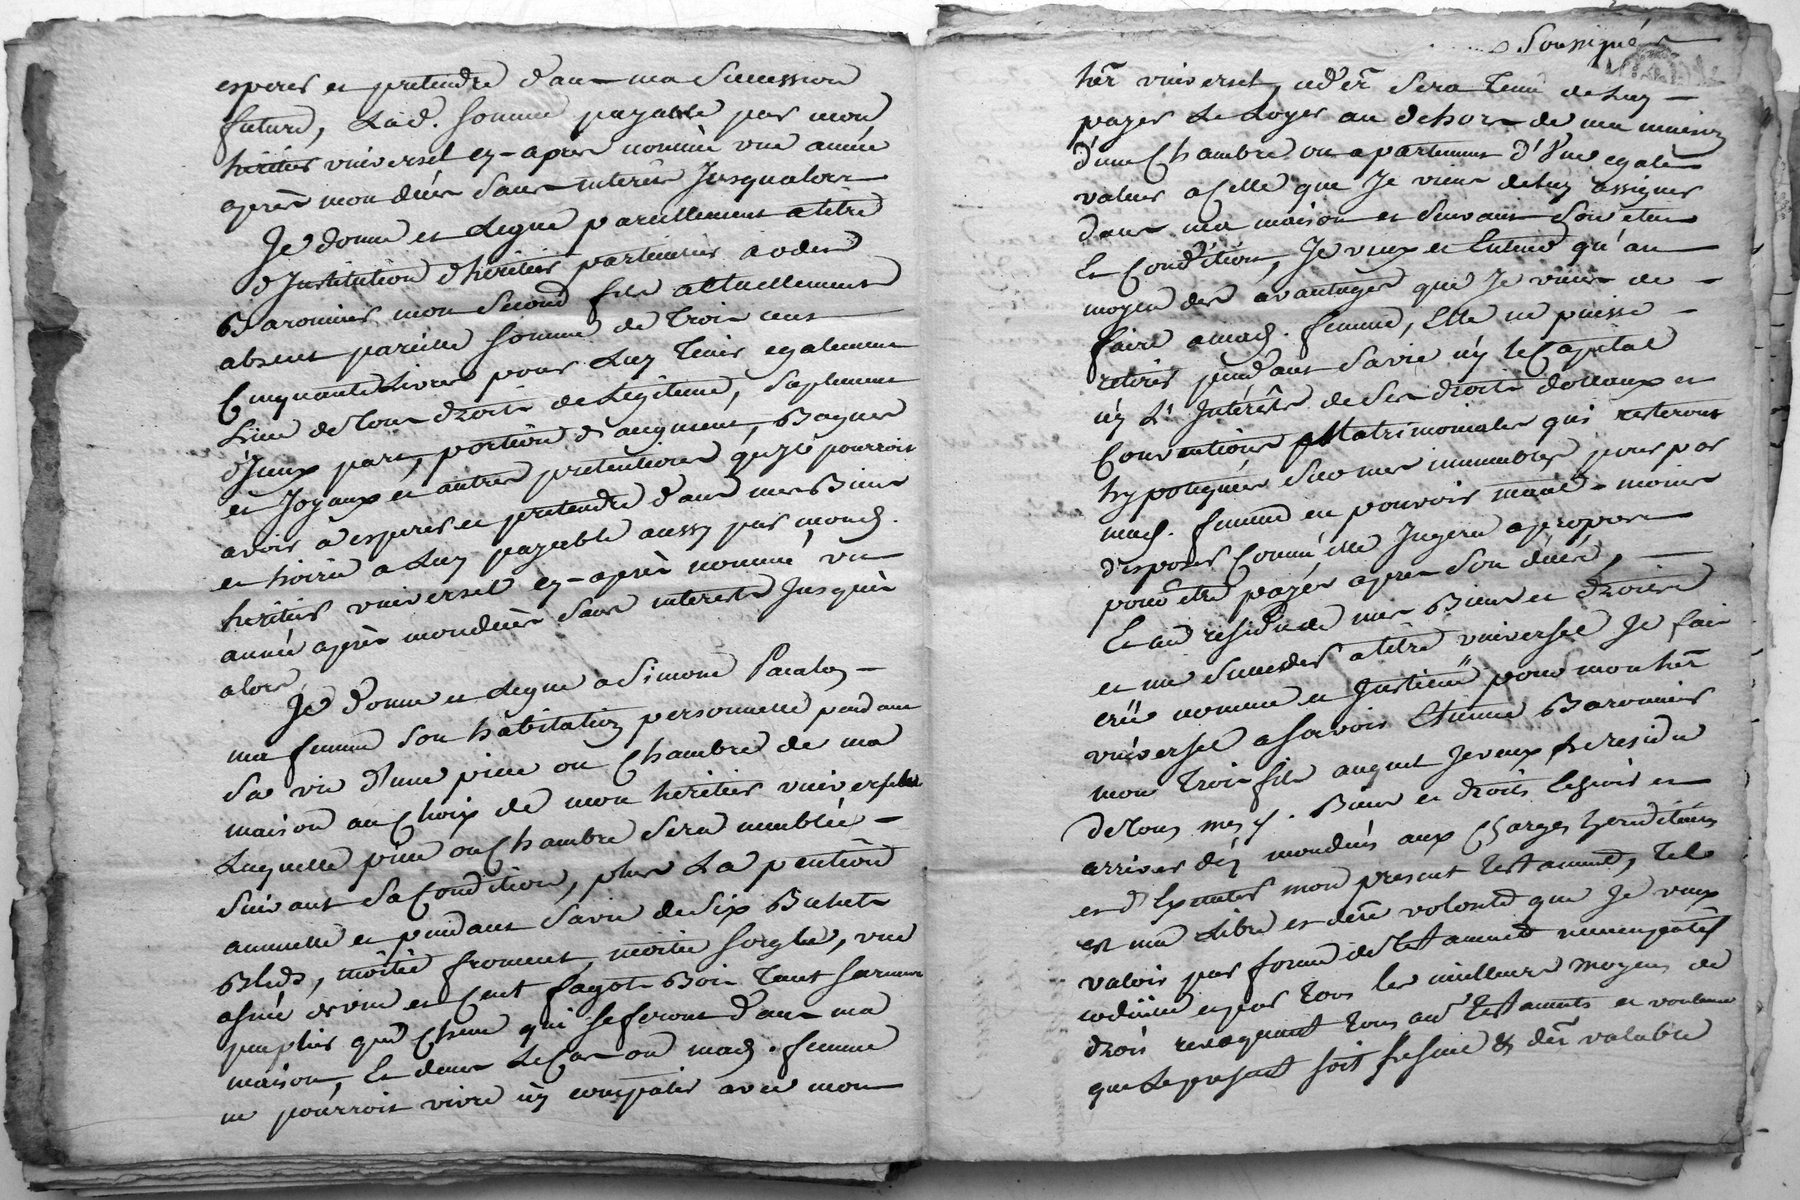 esperer et pretendre dans ma succession
future, Lad. somme payable par mon
heritier universel cy-apres nommé une année
après mon décès sans interets Jusqualors
Je donne et legue pareillement a titre
d'Institution d'heritier particulier a
Baronnier mon second fils actuellement
absent pareille somme de trois cens
Cinquante Livres pour Luy tenir egalement
Lieu de tous droits de Légitime, suplement
d'Jceux part, portion d'augment, Bagues
et Joyaux et autres pretentions qu'il pourroit
avoir à esperer et pretendre dans mes Biens
et hoirie a Luy payable aussy par mond.
heritier universel cy-après nommé, une
année après mon décès sans interests Jusques
alors
Je donne et legue a Simone
ma femme son habitation personnelle pendant
sa vie d'une piece ou Chambre de ma
maison au Choix de mon heritier universel
Laquelle piece ou Chambre sera meublée
suivant sa Condition, plus La pention
annuelle et pendant sa vie de six Bichets
Bleds, moitié froment, moitié seigle, une
asnée de vin et Cent fagots Bois tant sarment
peuplier que Chene qui se feront dans ma
maison, Et dans Le Cas ou mad. femme
ne pourroit vivre ny compatir avec mon
Soussigné
her universel, sera tenu de Luy
payer Le Loyer au dehors de ma maison
d'une Chambre ou apartement d'une egale
valeur a Celle que Je viens de Luy assigner
dans ma maison et suivant son état
Et Condition, Je veux et Entend qu'au
moyen des avantages que Je viens de
faire a mad. femme, Elle ne puisse
retirer pendant sa vie n'y le Capital
n'y L'Intérêts de ses droits dotaux et
Conventions Matrimoniales qui resteront
hypotequées sur mes immeubles pour par
mad. femme en pouvoir neanmoins
disposer Comme elle Jugera apropos
pour être payés apres son décès,
Et au résidu de mes Biens et droits
et me succeder a titre universel Je fais
créé nomme et Jnstitue pour mon her
universel a savoir Etienne Baronnier
mon trois fils auquel Je veux le residu
de tous mes d. Biens et droits Eschoir et
arriver dez mon décès aux Charges hereditaires
et d'Executer mon present testament, tels
est ma Libre et dere volonté que Je veux
valoir par forme de testament nuncupatif
codicille et par tous les meilleurs moyens de
droit revoquant tous autr testaments et voulant
que Le present soit Le seul & der valable